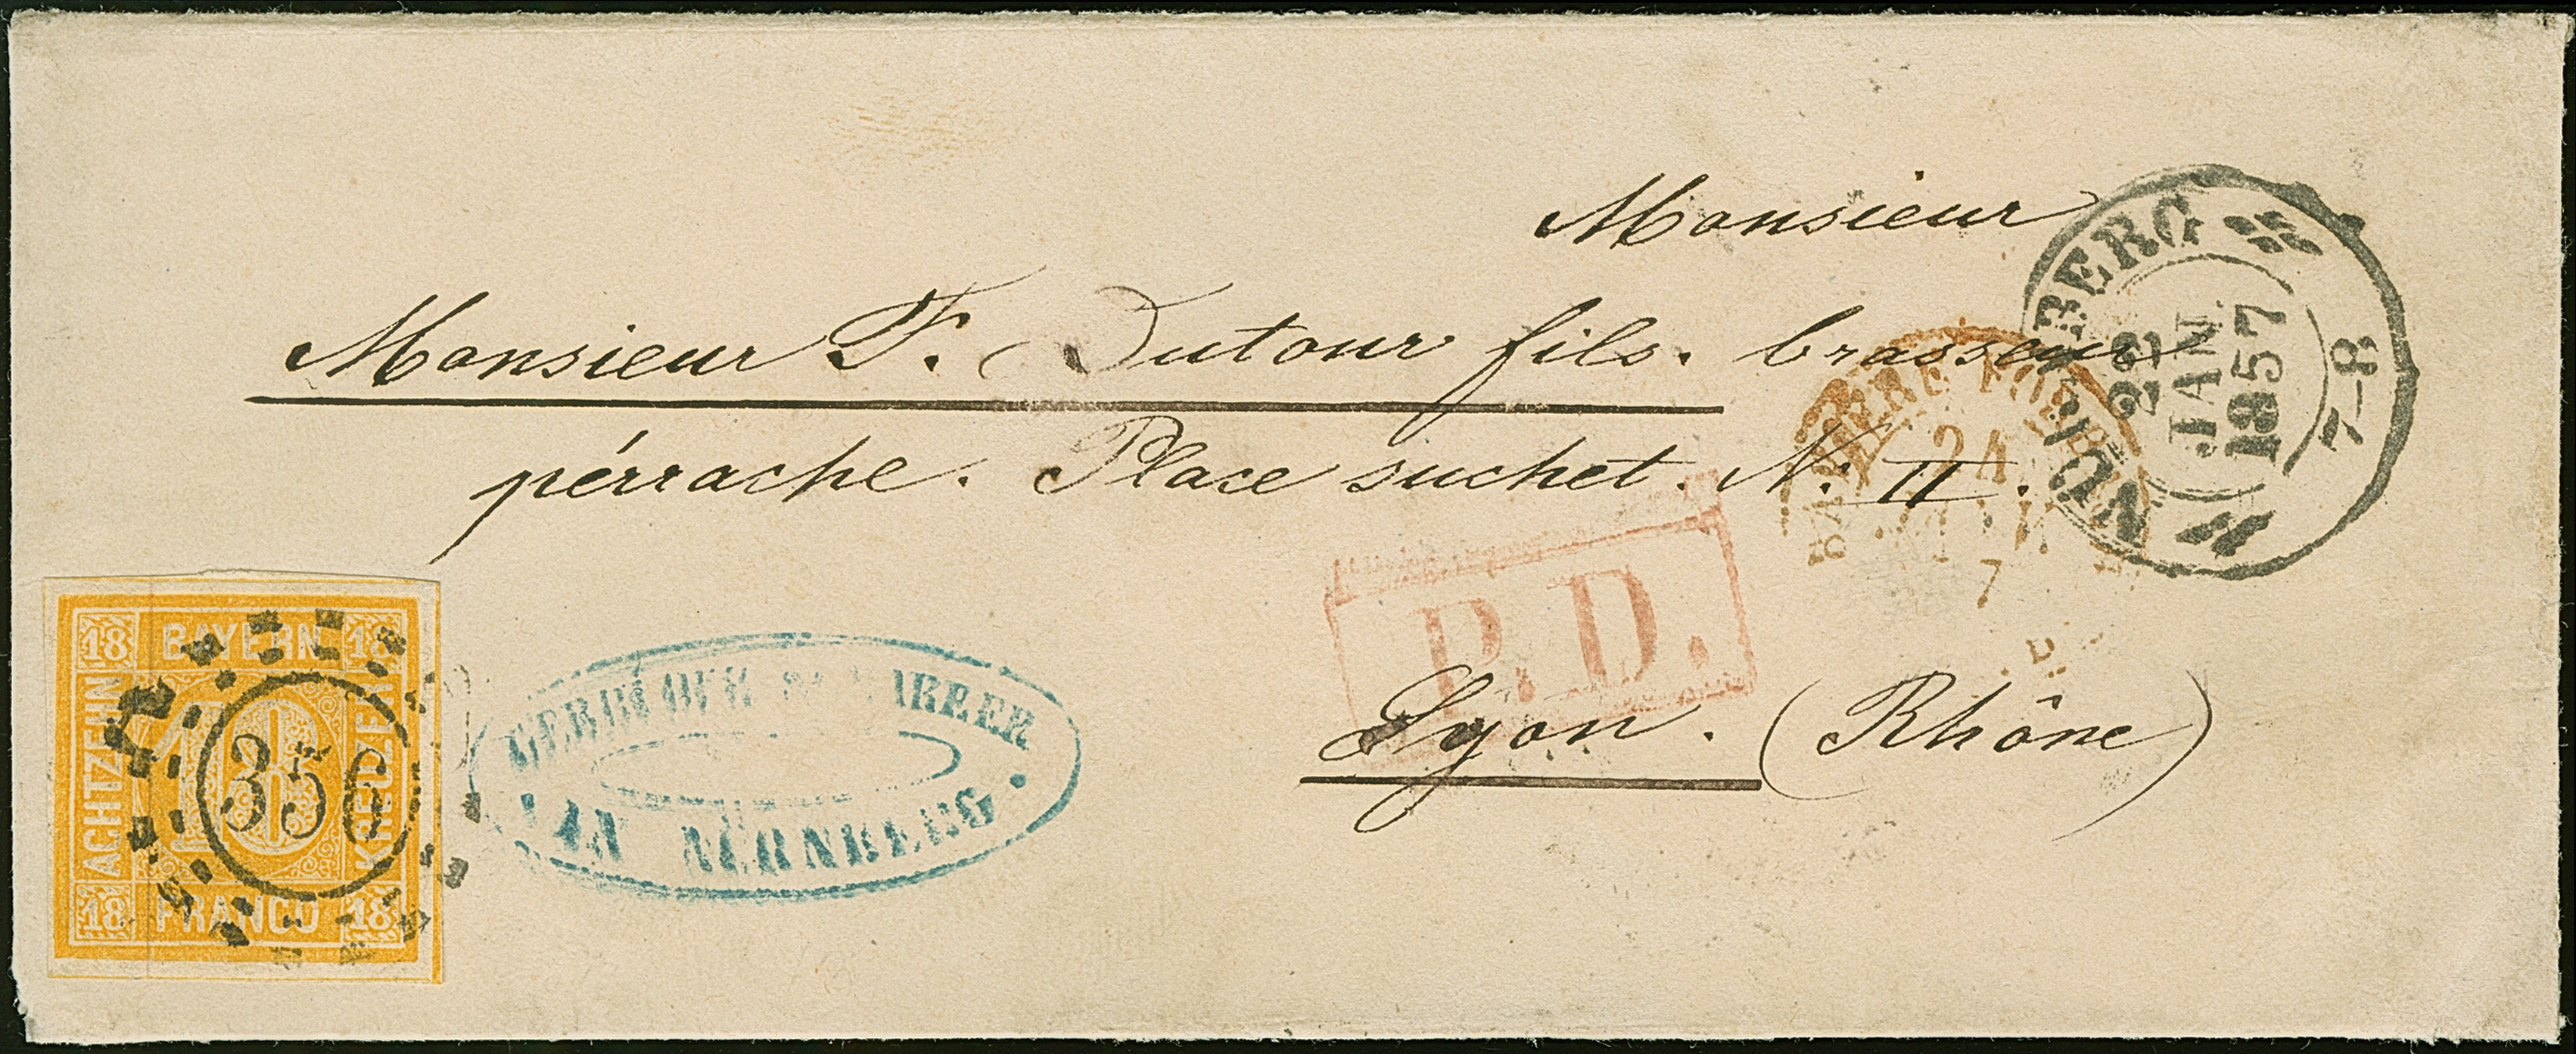 Monsieur
Monsieur F. Dutour fils. brasseur
pérrache. Place suchet. N. II.
Lyon. (Rhône)
P.D.
NÜRNBERG
22
JAN
1857
7-8
24
7
18 BAYERN 18
ACHTZEHN
18
KREUZER
18 FRANCO 18
356
GEBRÜDER
IN NÜRNBERG.